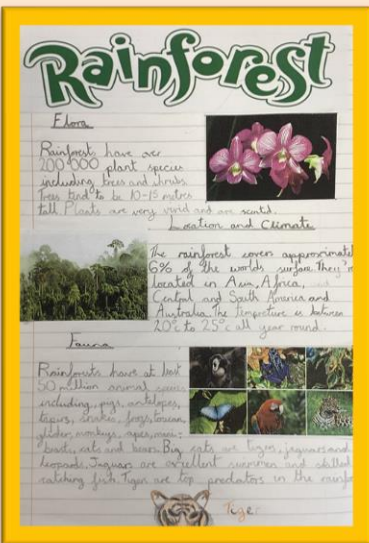 Rainforest
Flora
Rainforests have over
200 000 plant species
including trees and shrubs.
Trees tend to be 10-15 metres
tall Plants are very vivid and are scentd.
Location and Climate
The rainforest covers approximatel
6% of the worlds surface. They
located in Asia, Africa,
Central and South America and
Australia. The temprature is between
20°c to 25°c all year round.
Fauna
Rainforests have at least
50 million animal
including, pigs, antelopes,
tapirs, snakes, frogs, toucan,
gliders, monkeys, apes,
bats, rats and bears. Big cats are tigers, jaguars and
leopards. Jaguars are excellent swimmers and skilled
catching fish. Tigers are top predators in the rainfor
Tiger